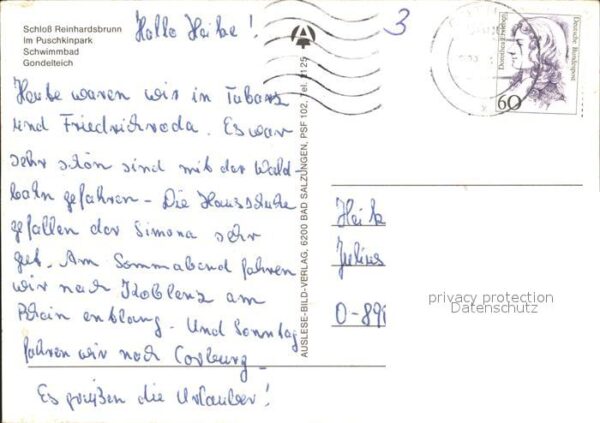 Schloß Reinhardsbrunn
Im Puschkinpark
Schwimmbad
Gondelteich
Hallo Heike!
3
Heute waren wir in Tabarz
und Friedrichroda. Es war
sehr schön sind mit der Wald
bahn gefahren - Die Hausschuhe
gefallen der Simona sehr
gut. Am Sonnabend fahren
wir nach Koblenz am
Rhein entlang. Und Sonntag
fahren wir nach Coburg
Es grüßen die Urlauber!
AUSLESE-BILD-VERLAG, 6200 BAD SALZUNGEN, PSF 102, Tel. 2125
Deutsche Bundespost
60
Julius
O-89
privacy protection
Datenschutz